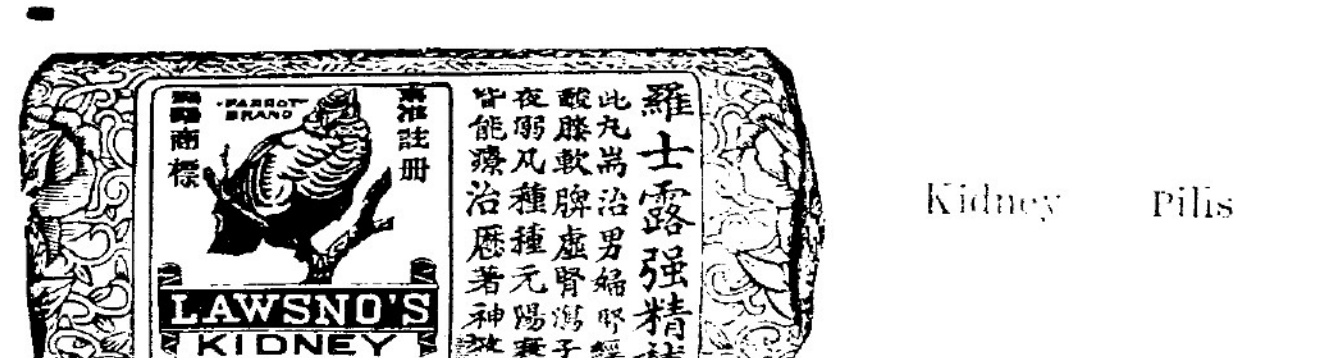 鸚鵡商標
·PARROT·
BRAND
案准註册
LAWSNO'S
KIDNEY
羅士露强精
此丸耑治男婦腎經
酸膝軟脾虛腎瀉子
夜溺凡種種元陽衰
皆能療治歷著神效
Kidney Pills